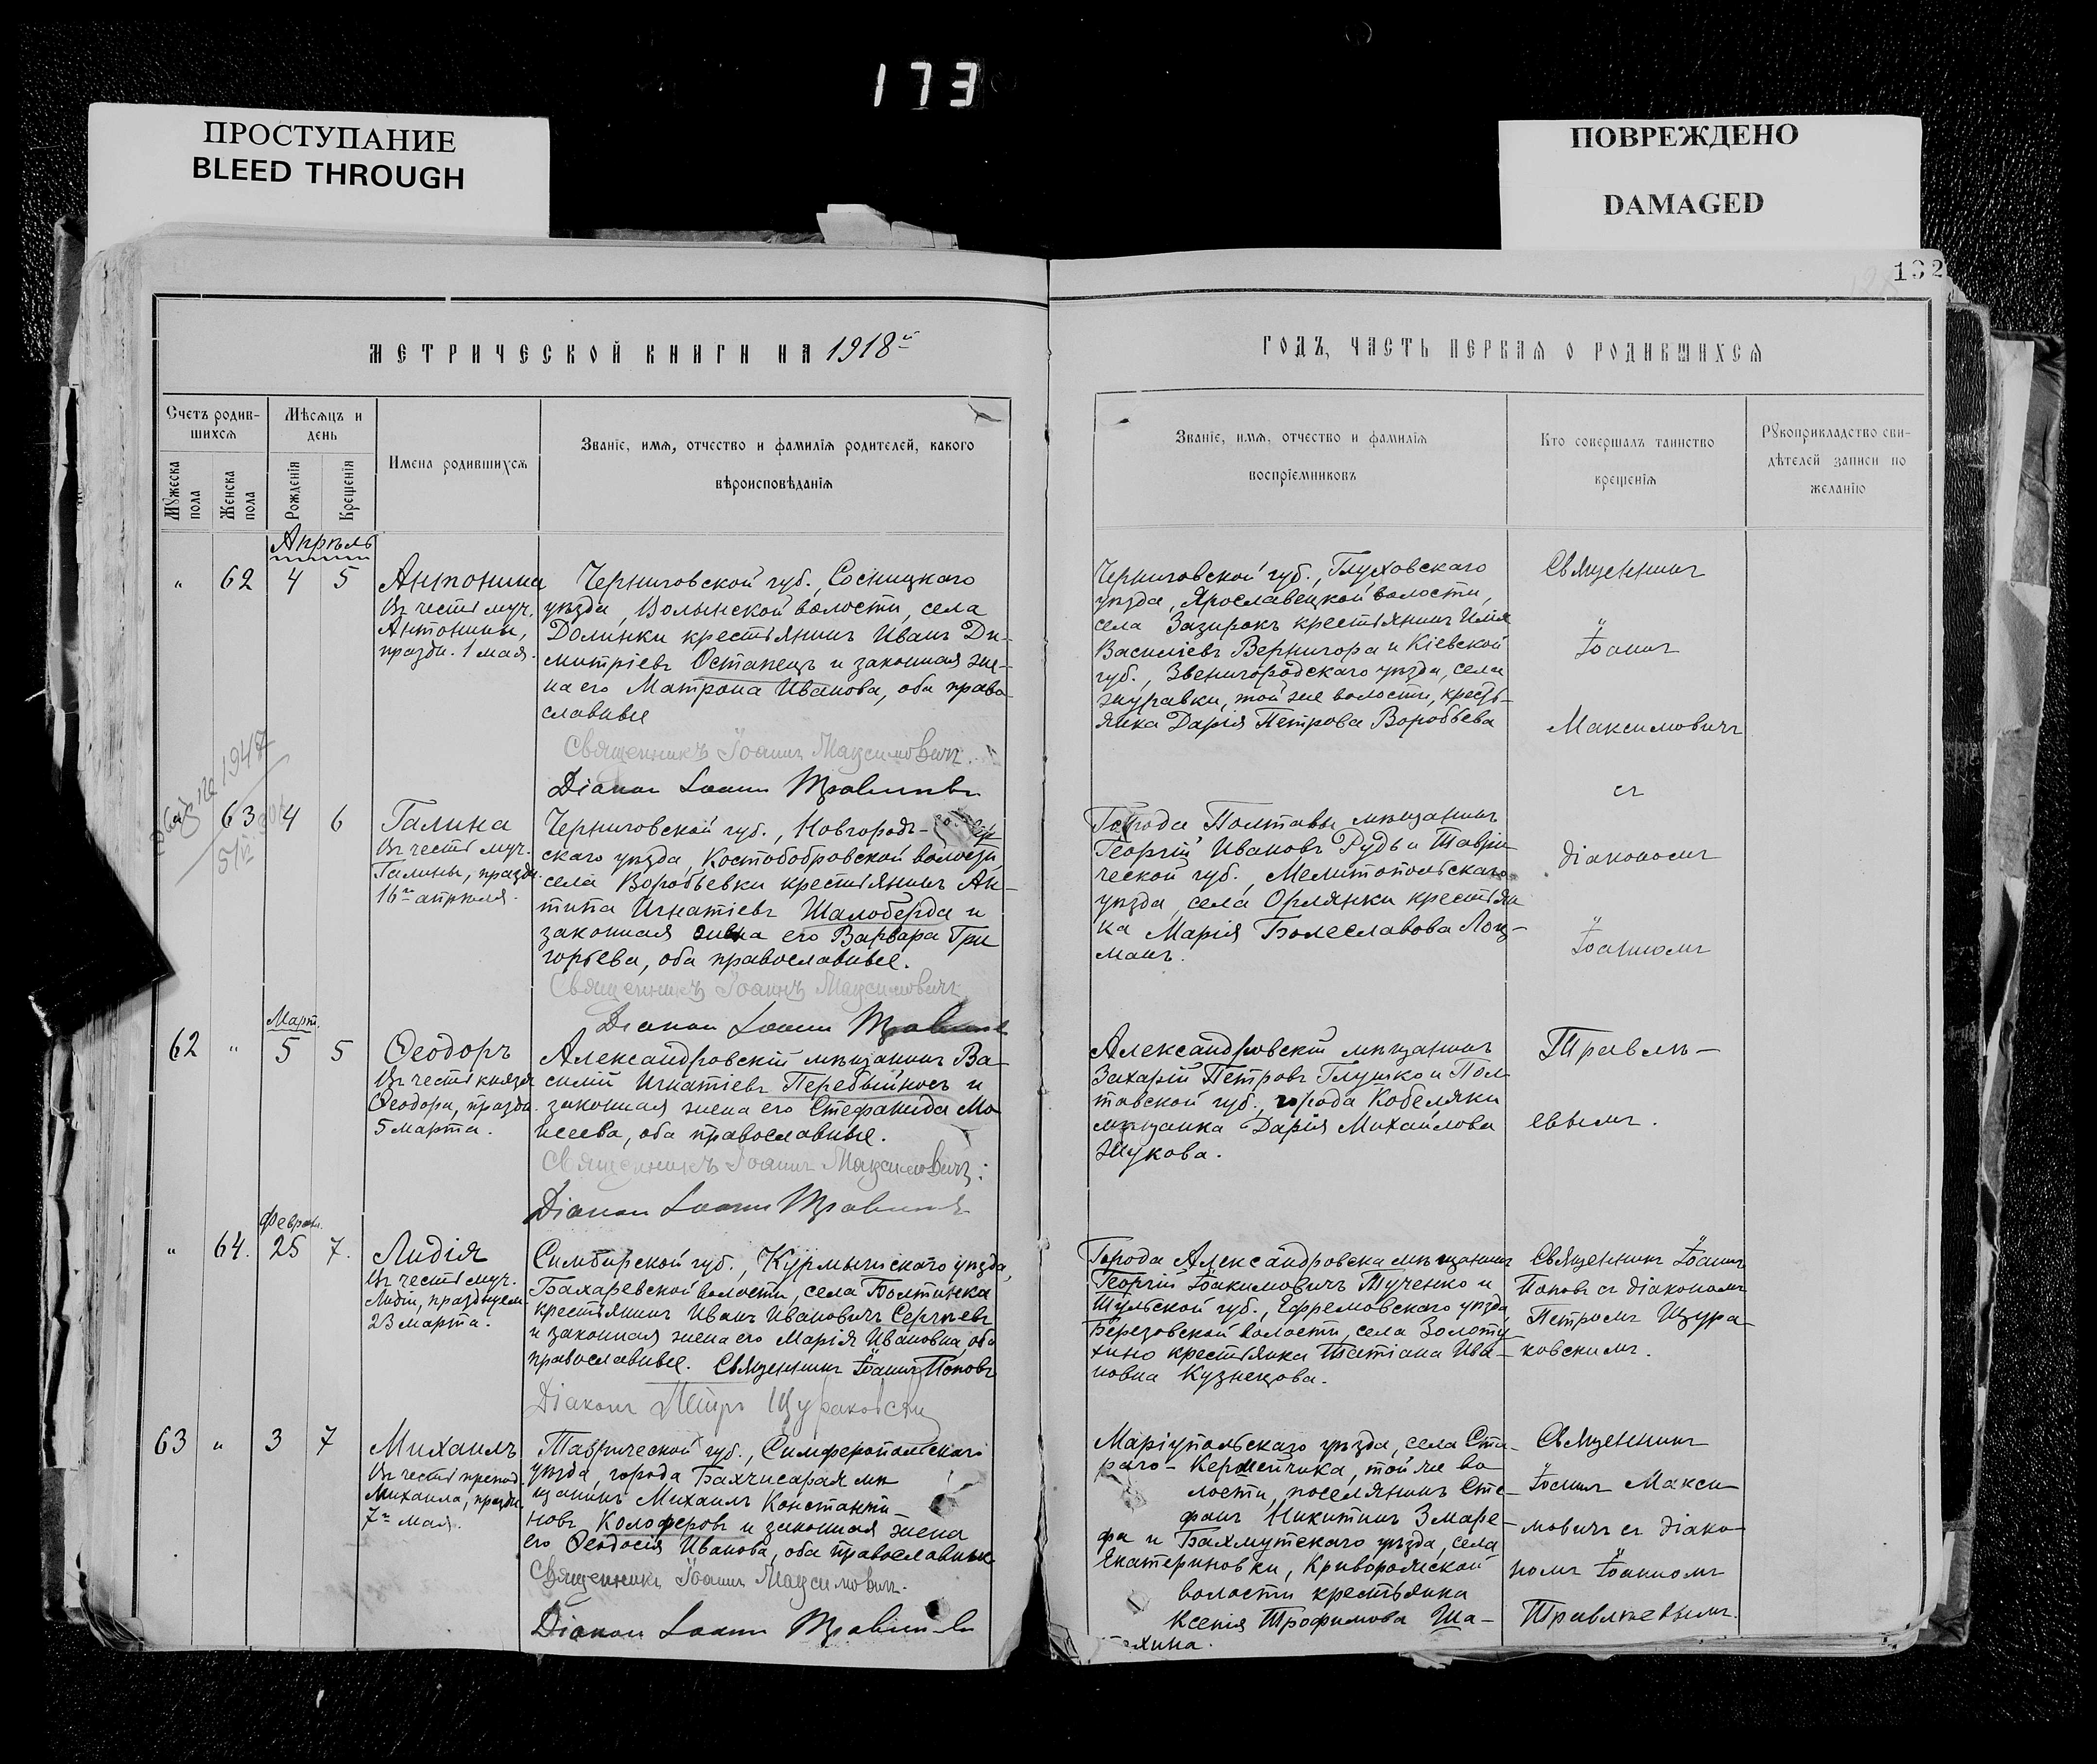 173
ПРОСТУПАНИЕ
BLEED THROUGH
ПОВРЕЖДЕНО
DAMAGED
132
МЕТРИЧЕСКОЙ КНИГИ НА 1918й
ГОДЪ, ЧАСТЬ ПЕРВАЯ О РОДИВШИХСЯ
Счетъ родив-
шихся
Мѣсяцъ и
день
Мужеска
пола
Женска
пола
Рожденія
Крещенія
Имена родившихся
Званіе, имя, отчество и фамилія родителей, какого
вѣроисповѣданія
Званіе, имя, отчество и фамилія
воспріемниковъ
Кто совершалъ таинство
крещенія
Рукоприкладство сви-
дѣтелей записи по
желанію
Апрѣль
" 62 4 5
Антонина
Въ честь муч.
Антонины,
праздн. 1 мая.
Черниговской губ., Сосницкаго
уѣзда, Волынской волости, села
Долинки крестьянинъ Иванъ Ди-
митріевъ Остапецъ и законная же-
на его Матрона Иванова, оба право-
славные
Священникъ Іоаннъ Максимовичъ.
Діакон Іоанн Травлѣевъ
Черниговской губ., Глуховскаго
уѣзда, Ярославецкой волости,
села Зазирокъ крестьянинъ Илія
Василіевъ Вернигора и Кіевской
губ., Звенигородскаго уѣзда, села
Журавки, той же волости, кресть-
янка Дарія Петрова Воробьева
Священникъ
Іоаннъ
Максимовичъ
съ
діакономъ
Іоанномъ
Травлѣ-
евымъ.
1947
63 4 6
Галина
Въ честь муч.
Галины, праздн.
16го апрѣля.
Черниговской губ., Новгородъ-
скаго уѣзда, Костобобровской волости
села Воробьевки крестьянинъ Ан-
типа Игнатіевъ Шалоберда и
законная жена его Варвара Гри
горьева, оба православные.
Священникъ Іоаннъ Максимовичъ
Діакон Іоанн Травлѣевъ
Города Полтавы мѣщанинъ
Георгій Ивановъ Рудь и Таври-
ческой губ., Мелитопольскаго
уѣзда, села Орлянки крестьян
ка Марія Болеславова Лоц-
манъ.
Март.
62 " 5 5
Ѳеодоръ
Въ честь князя
Ѳеодора, праздн.
5 марта.
Александровскій мѣщанинъ Ва-
силій Игнатіевъ Перебыйносъ и
законная жена его Стефанида Мо
исеева, оба православные.
Священникъ Іоаннъ Максимовичъ.
Діакон Іоанн Травлѣевъ
Александровскій мѣщанинъ
Захарій Петровъ Глушко и Пол-
тавской губ., города Кобеляки
мѣщанка Дарія Михайлова
Жукова.
Феврал.
" 64. 25 7.
Лидія
Въ честь муч.
Лидіи, празднуем.
23 марта.
Симбирской губ., Курмышскаго уѣзда,
Бахаревской волости, села Болтинка
крестьянинъ Иванъ Ивановичъ Сергѣевъ
и законная жена его Марія Ивановна, оба
православные. Священникъ Іоаннъ Поповъ
Діаконъ Петръ Щураковскій
Города Александровска мѣщанинъ
Георгій Іоакимовичъ Тученко и
Тульской губ., Ефремовскаго уѣзда
Березовской волости, села Золоту
хино крестьянка Татіана Ива-
новна Кузнецова.
Священникъ Іоаннъ
Поповъ съ діакономъ
Петромъ Щура-
ковскимъ.
63 " 3 7
Михаилъ
Въ честь препод.
Михаила, праздн.
7го мая.
Таврической губ., Симферопольскаго
уѣзда, города Бахчисарая мѣ
щанинъ Михаилъ Константи-
новъ Колоферовъ и законная жена
его Ѳеодосія Иванова, оба православные
Священникъ Іоаннъ Максимовичъ.
Діакон Іоанн Травлѣевъ
Маріупольскаго уѣзда, села Ста-
раго-Керменчика, той же во
лости, поселянинъ Сте-
фанъ Никитинъ Змаре-
фа и Бахмутскаго уѣзда, села
Екатериновки, Криворожской
волости крестьянка
Ксенія Трофимова Ша-
Священникъ
Іоаннъ Макси-
мовичъ съ діако-
номъ Іоанномъ
Травлѣевымъ.